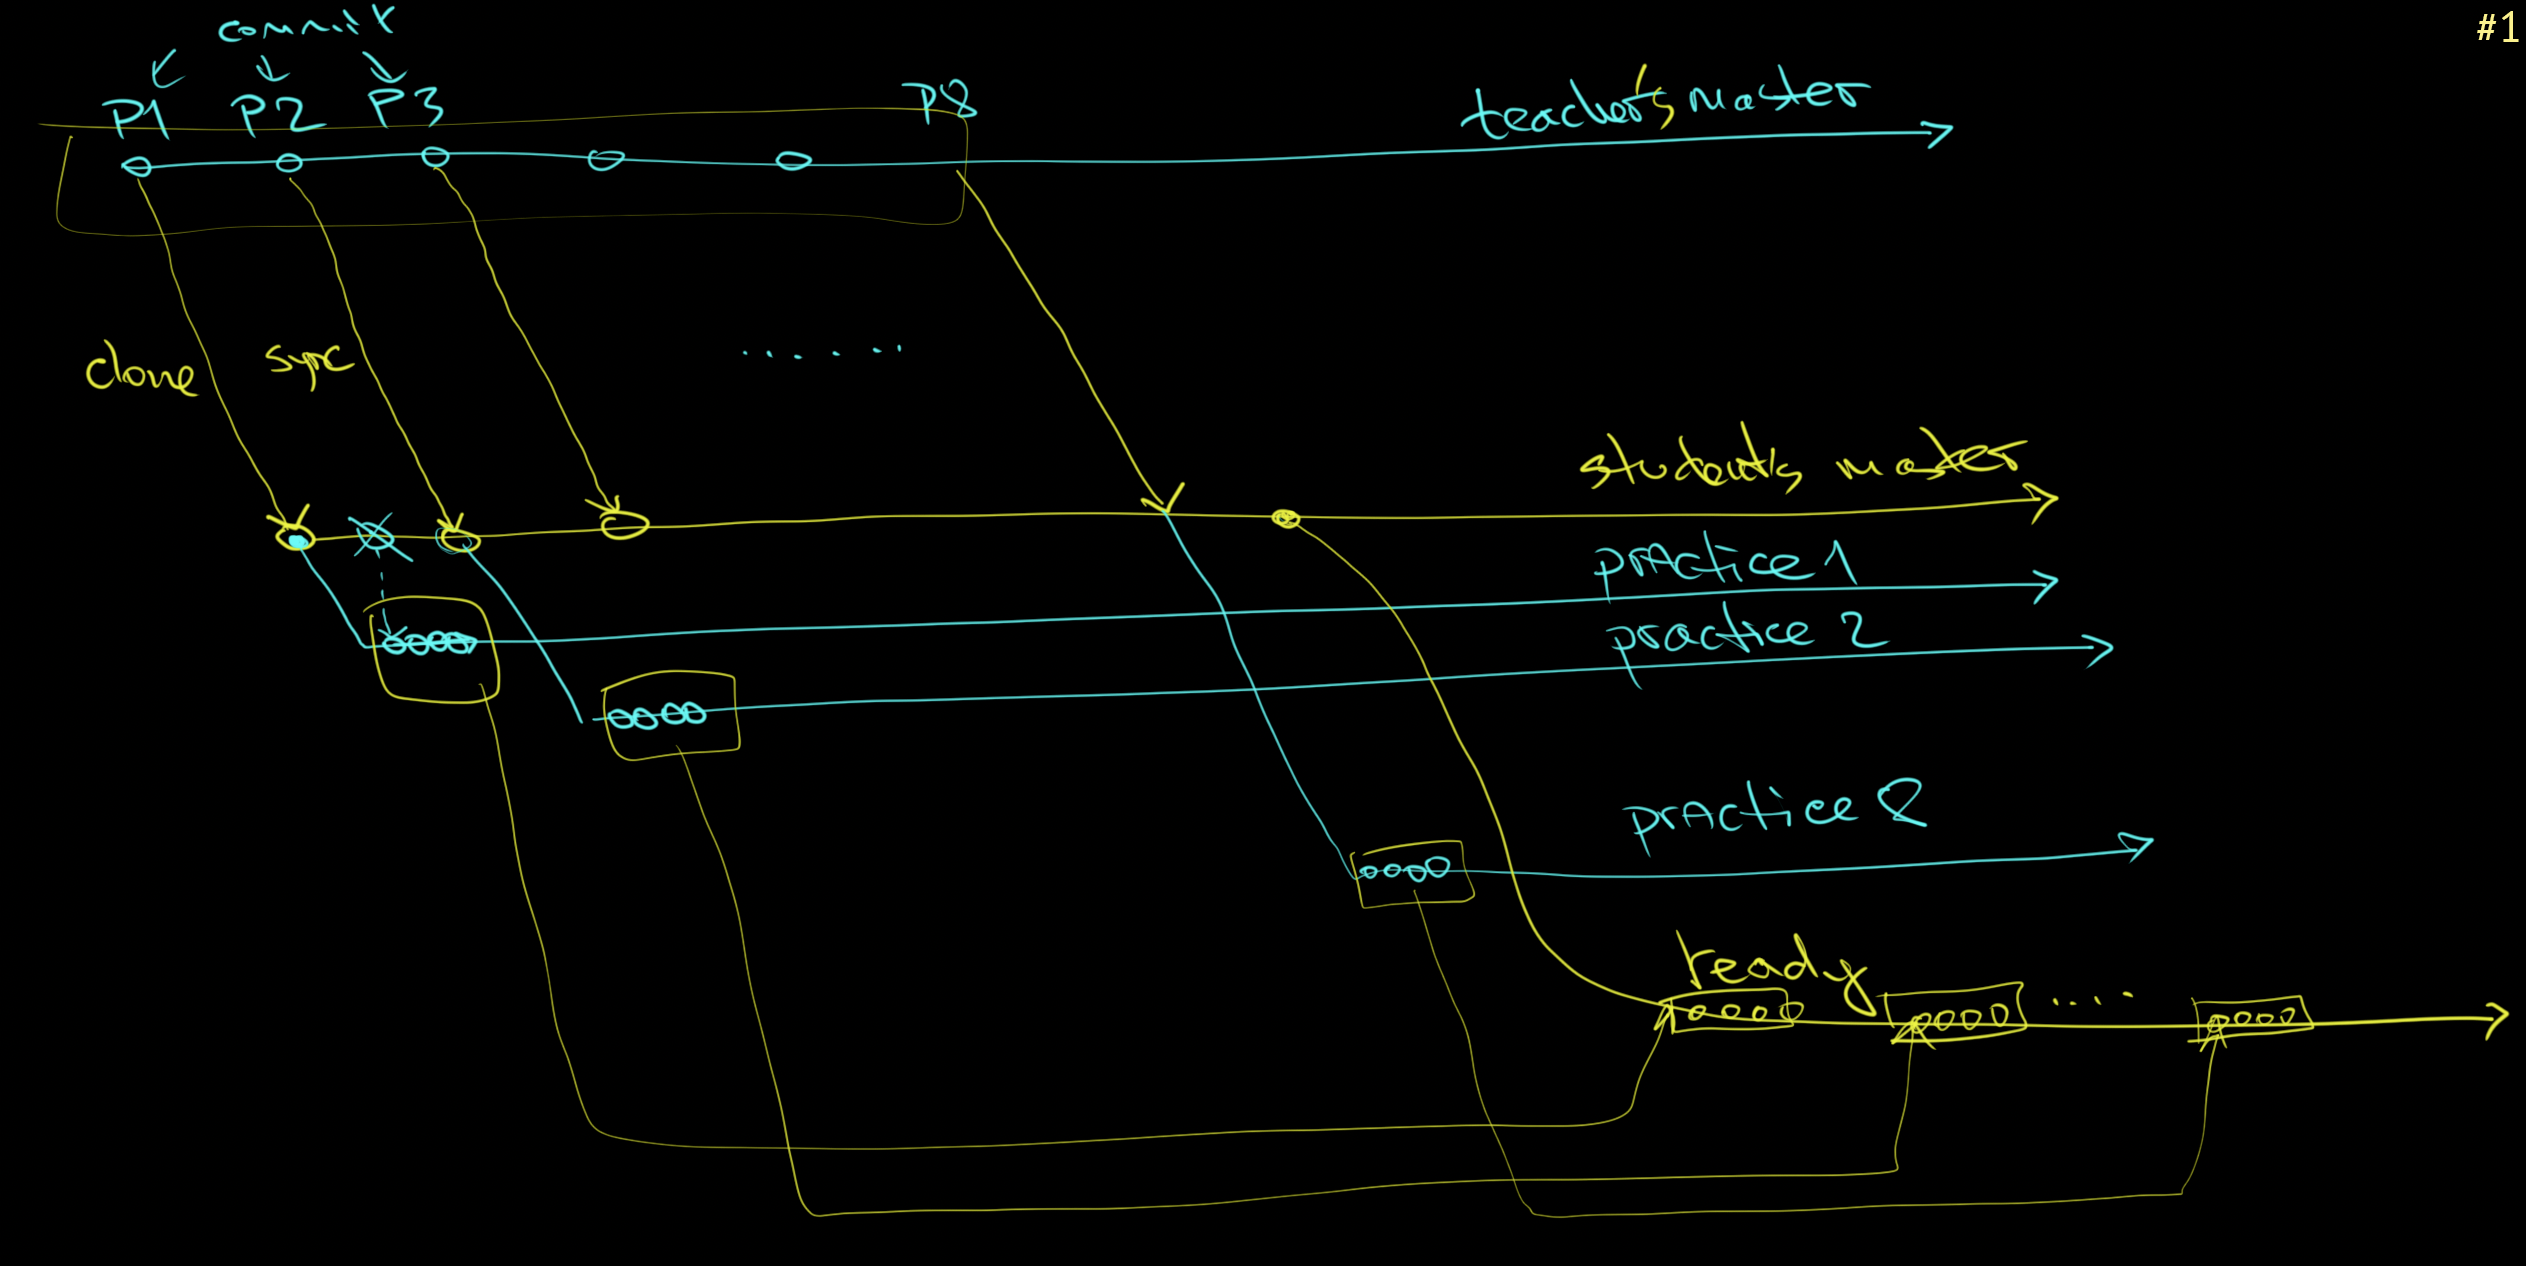 #1
commit
P1 P2 P3 P8
teacher's master
clone sync
student's master
practice 1
practice 2
practice 8
ready